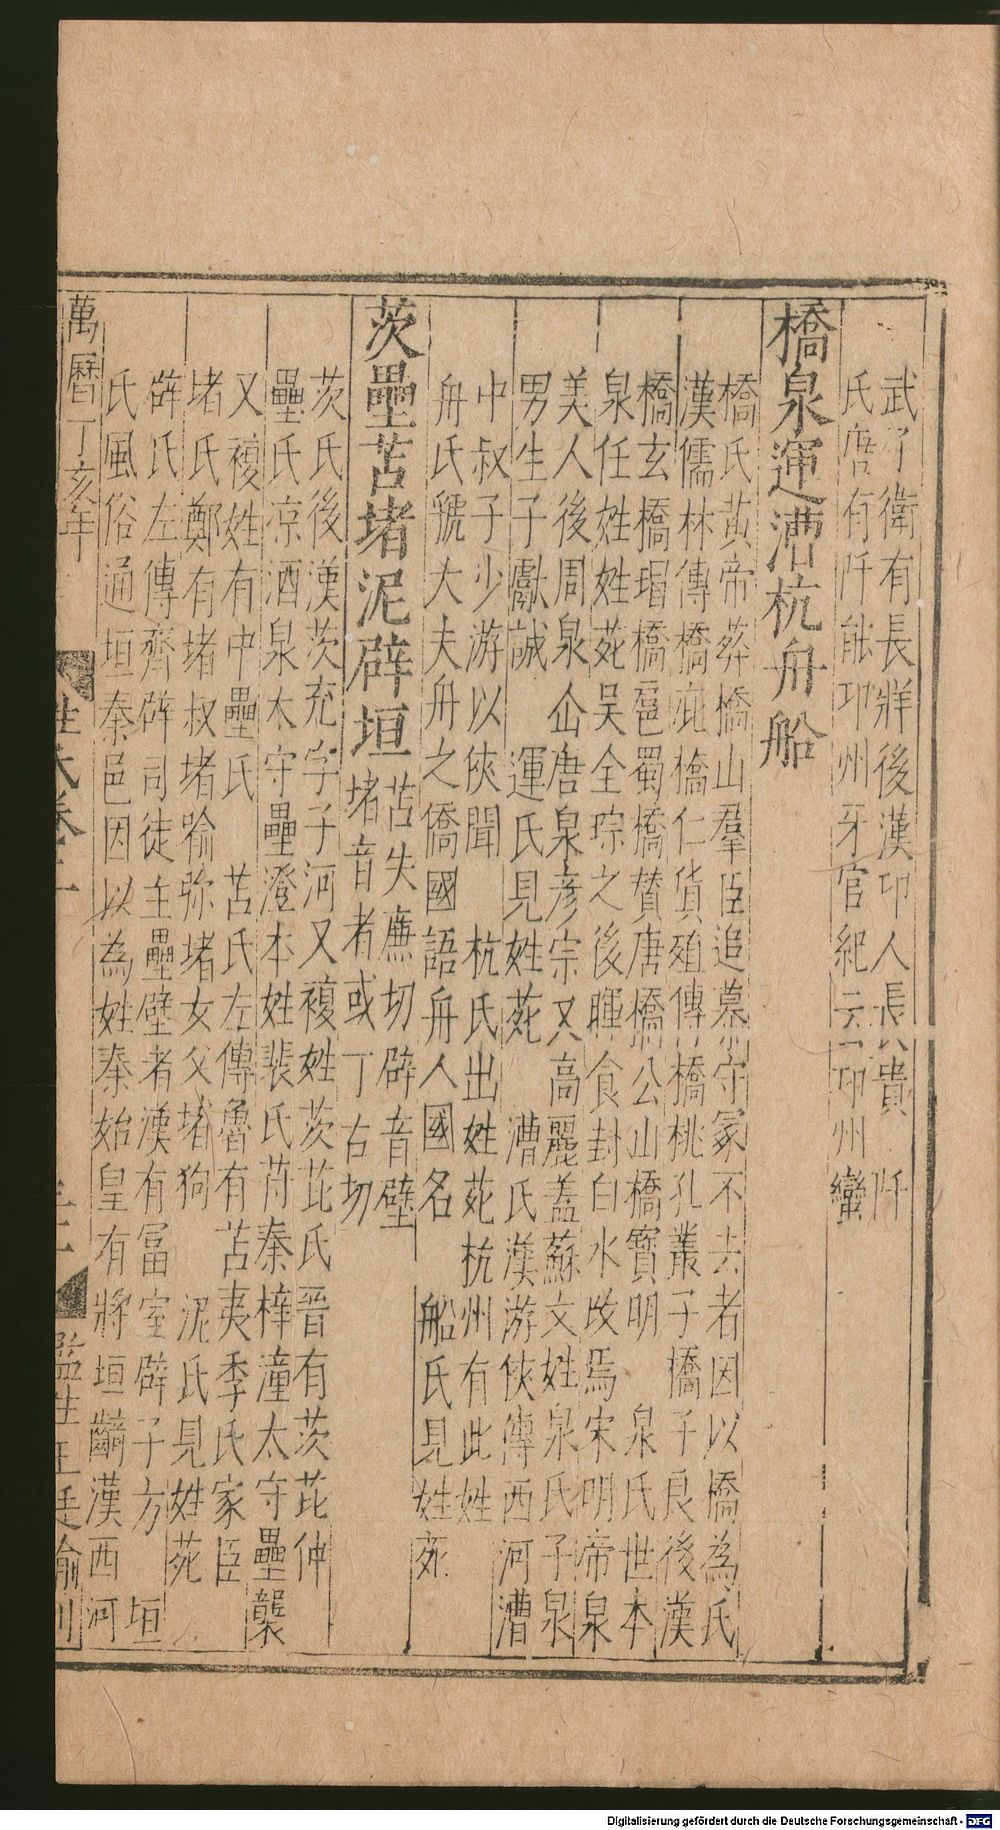 武子衛有長牂後漢邛人長貴　阡
氏唐有阡能邛州牙官紀云邛州蠻
橋泉運漕杭舟船
橋氏黃帝葬橋山羣臣追慕守冢不去者因以橋為氏
漢儒林傳橋庇橋仁貨殖傳橋桃孔叢子橋子良後漢
橋玄橋瑁橋扈蜀橋贊唐橋公山橋寶明　泉氏世本
泉任姓姓苑吳全琮之後暉食封白水改焉宋明帝泉
美人後周泉仚唐泉彥宗又高麗蓋蘇文姓泉氏子泉
男生子獻誠　運氏見姓苑　漕氏漢游俠傳西河漕
中叔子少游以俠聞　杭氏出姓苑杭州有此姓
舟氏虢大夫舟之僑國語舟人國名　船氏見姓苑
茨壘苫堵泥辟垣
苫失廉切辟音壁
堵音者或丁古切
茨氏後漢茨充字子河又複姓茨芘氏晉有茨芘仲
壘氏凉酒泉太守壘澄本姓裴氏苻秦梓潼太守壘襲
又複姓有中壘氏　苫氏左傳魯有苫夷季氏家臣
堵氏鄭有堵叔堵喻弥堵女父堵狗　泥氏見姓苑
辟氏左傳齊辟司徒主壘壁者漢有富室辟子方　垣
氏風俗通垣秦邑因以為姓秦始皇有將垣齮漢西河
萬曆丁亥年　姓氏卷　監生王廷諭刊
Digitalisierung gefördert durch die Deutsche Forschungsgemeinschaft - DFG